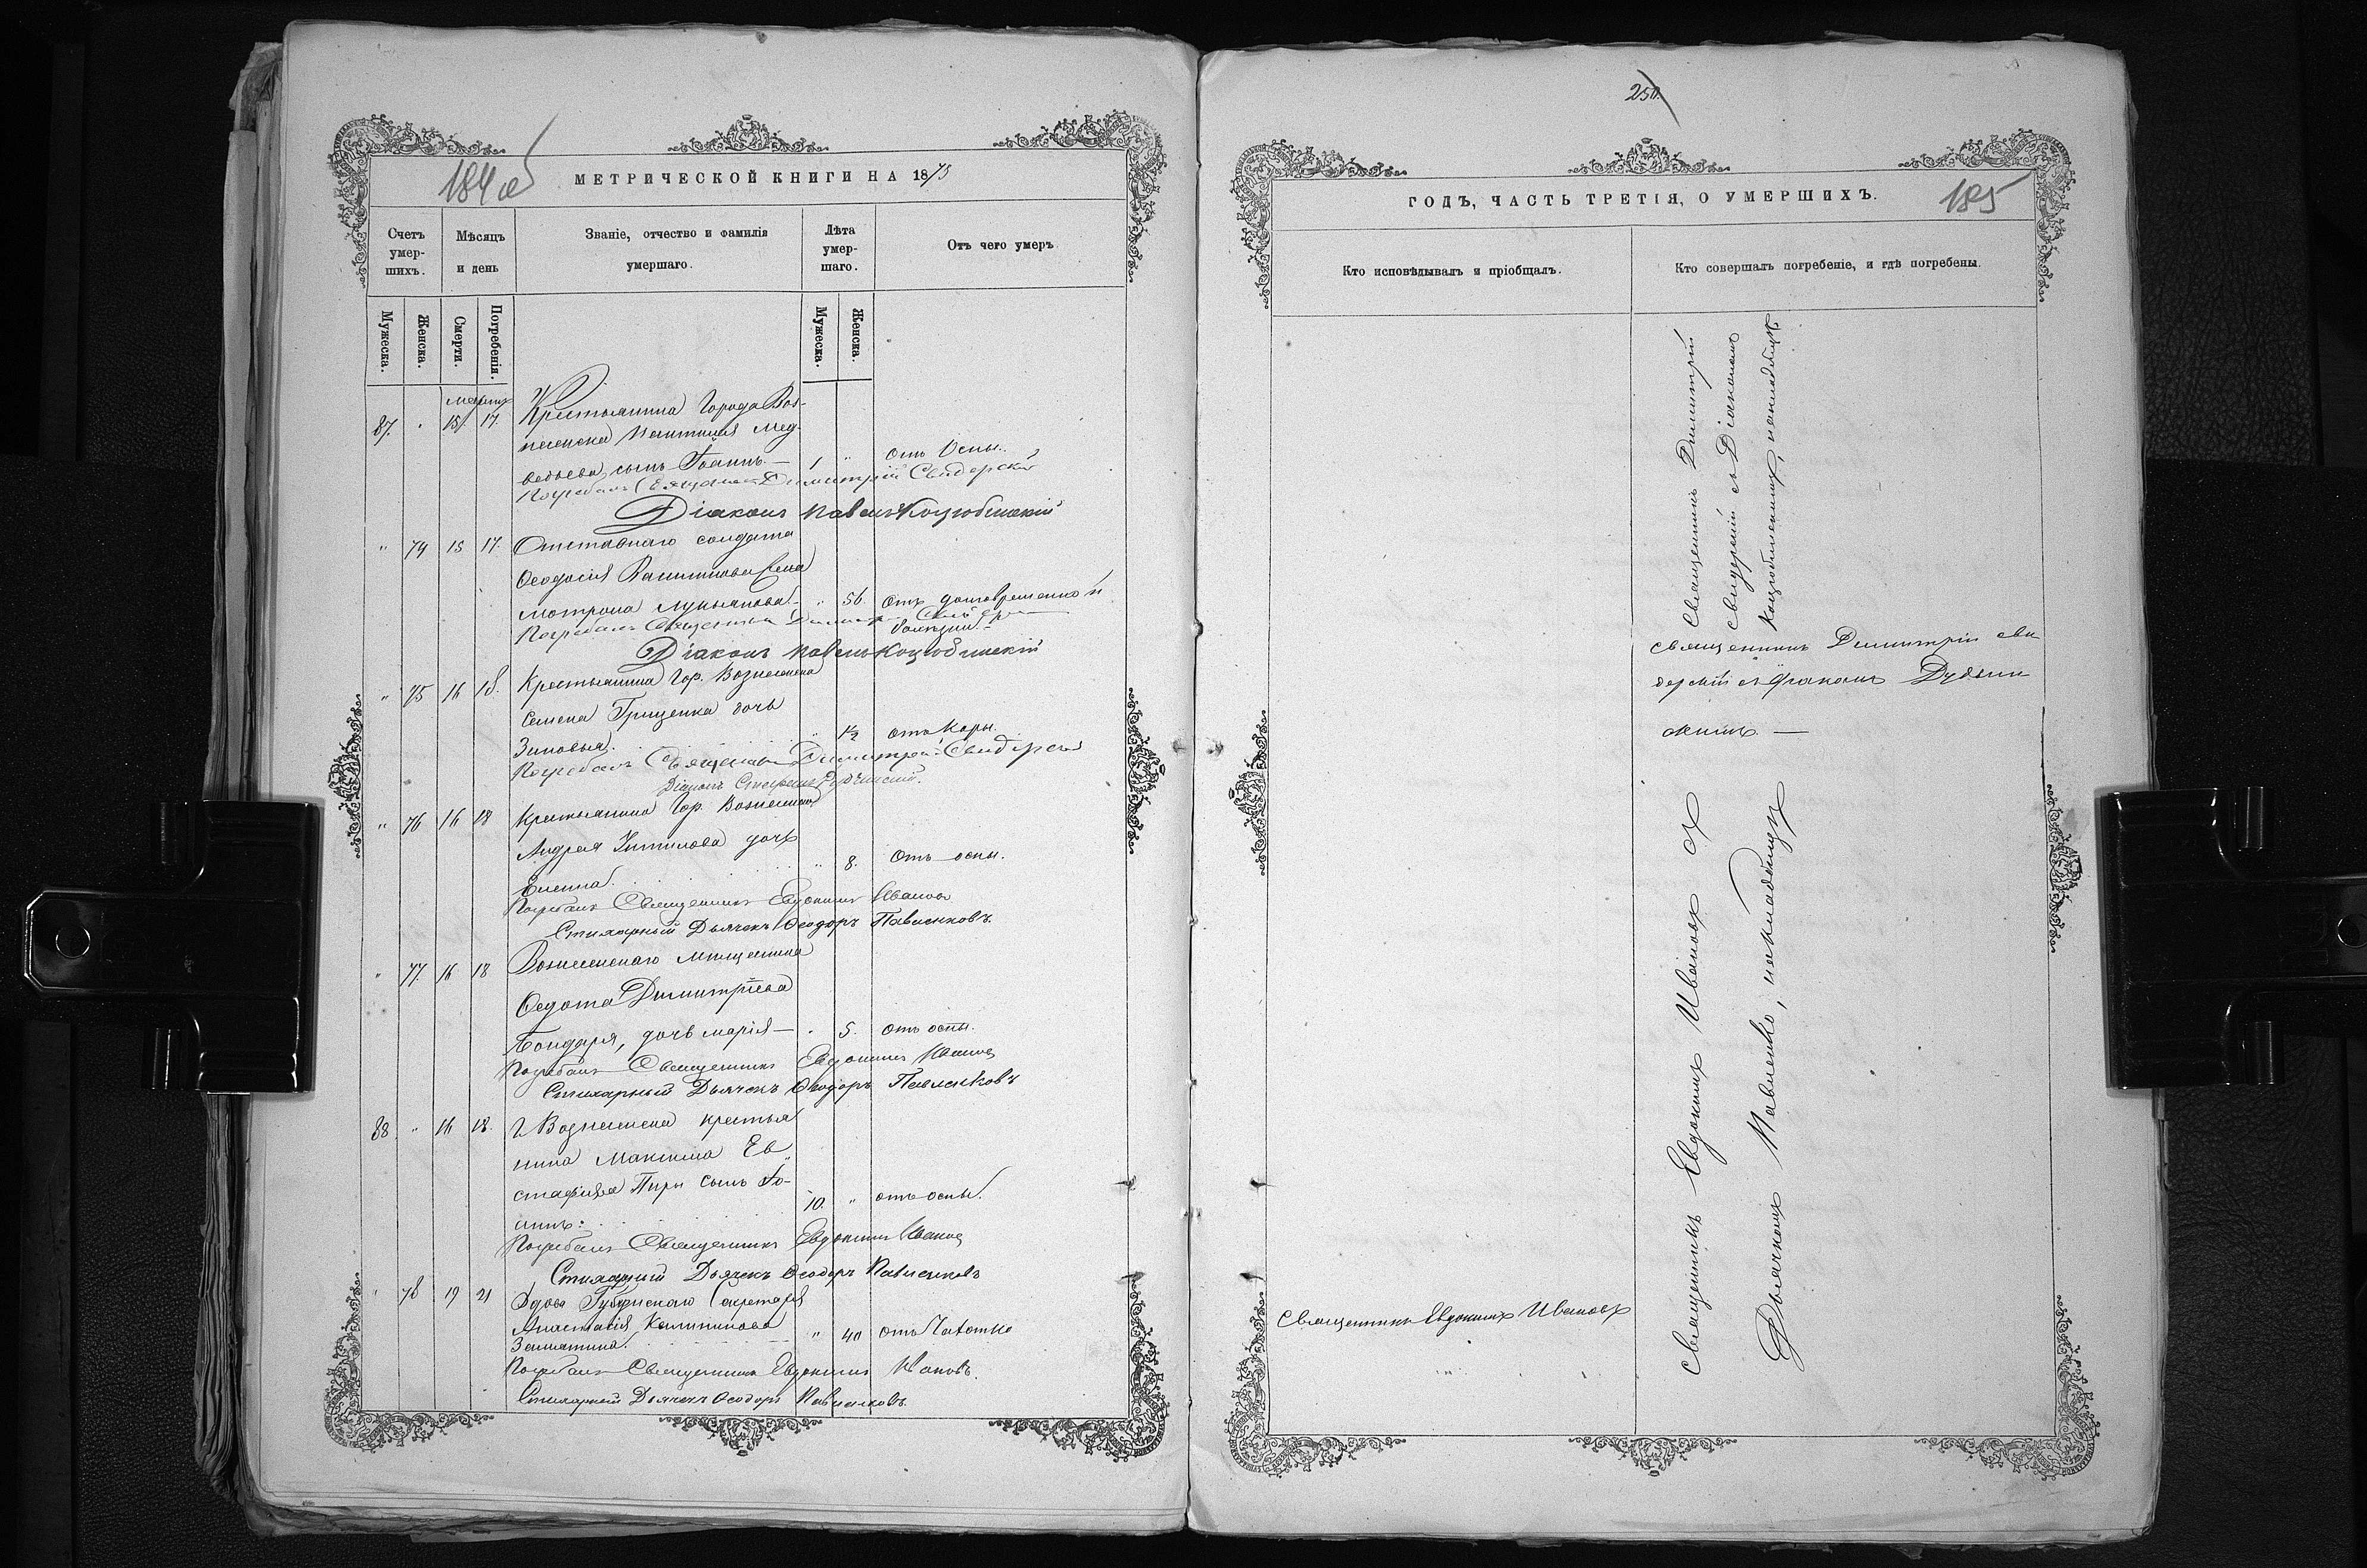 184 об
МЕТРИЧЕСКОЙ КНИГИ НА 1873
Счетъ умер-шихъ.
Мѣсяцъ и день
Званіе, отчество и фамилія умершаго.
Лѣта умер-шаго.
Отъ чего умеръ
Мужеска.
Женска.
Смерти.
Погребенія.
Мужеска.
Женска.
Марта
87. " 15 17. Крестьянина Города Воз-
несенска
ведьева, сынъ Іоаннъ. — 1 " отъ Оспы.
Погребалъ Священникъ Димитрій Свидерскій
Діаконъ Павелъ Коцюбинскій
" 74 15 17. Отставнаго солдата
Ѳеодосія жена
Мотрона Лукьянова. " 56. Отъ долговременной
Погребалъ Священникъ Димитрій Свидерскій
болезни.
Діаконъ Павелъ Коцюбинскій
" 75 16 18. Крестьянина Гор. Вознесенска
Семена Грищенка дочь
Зиновья. " ½ отъ Кори.
Погребалъ Священникъ Димитрій Свидерскій
Діаконъ Стефанъ
" 76 16 18 Крестьянина Гор. Вознесенска
Андрея дочь
Елена. " 8. Отъ оспы.
Погребалъ Священникъ Евдокимъ Ивановъ
Стихарный Дьячекъ Ѳеодоръ Павленковъ.
" 77. 16 18 Вознесенскаго мѣщанина
Ѳедота Димитріева
Бондаря, дочь Марія — " 5. отъ оспы.
Погребалъ Священникъ Евдокимъ Ивановъ
Стихарный Дьячекъ Ѳеодоръ Павленковъ
88. " 16 18. г. Вознесенска крестья
нина Максима Ев
стафіева Пиры сынъ Іо-
аннъ: 10. " отъ оспы.
Погребалъ Священникъ Евдокимъ Ивановъ
Стихарный Дьячекъ Ѳеодоръ Павленковъ
" 78 19 21 Вдова Губернскаго Секретаря
Анастасія Калиникова
" 40 отъ Чахотки
Погребалъ Священникъ Евдокимъ Ивановъ.
Стихарный Дьячекъ Ѳеодоръ Павленковъ.
250.
ГОДЪ, ЧАСТЬ ТРЕТІЯ, О УМЕРШИХЪ.
185
Кто исповѣдывалъ и пріобщалъ.
Кто совершалъ погребеніе, и гдѣ погребены.
Священникъ Димитрій
Свидерскій съ Діакономъ
Коцюбинскимъ, накладбищѣ
Священникъ Димитрій Сви
дерскій съ Діаконом
скимъ —
Священникъ Евдокимъ Ивановъ съ
Дьячкомъ Павленко, накладбищѣ
Священникъ Евдокимъ Ивановъ